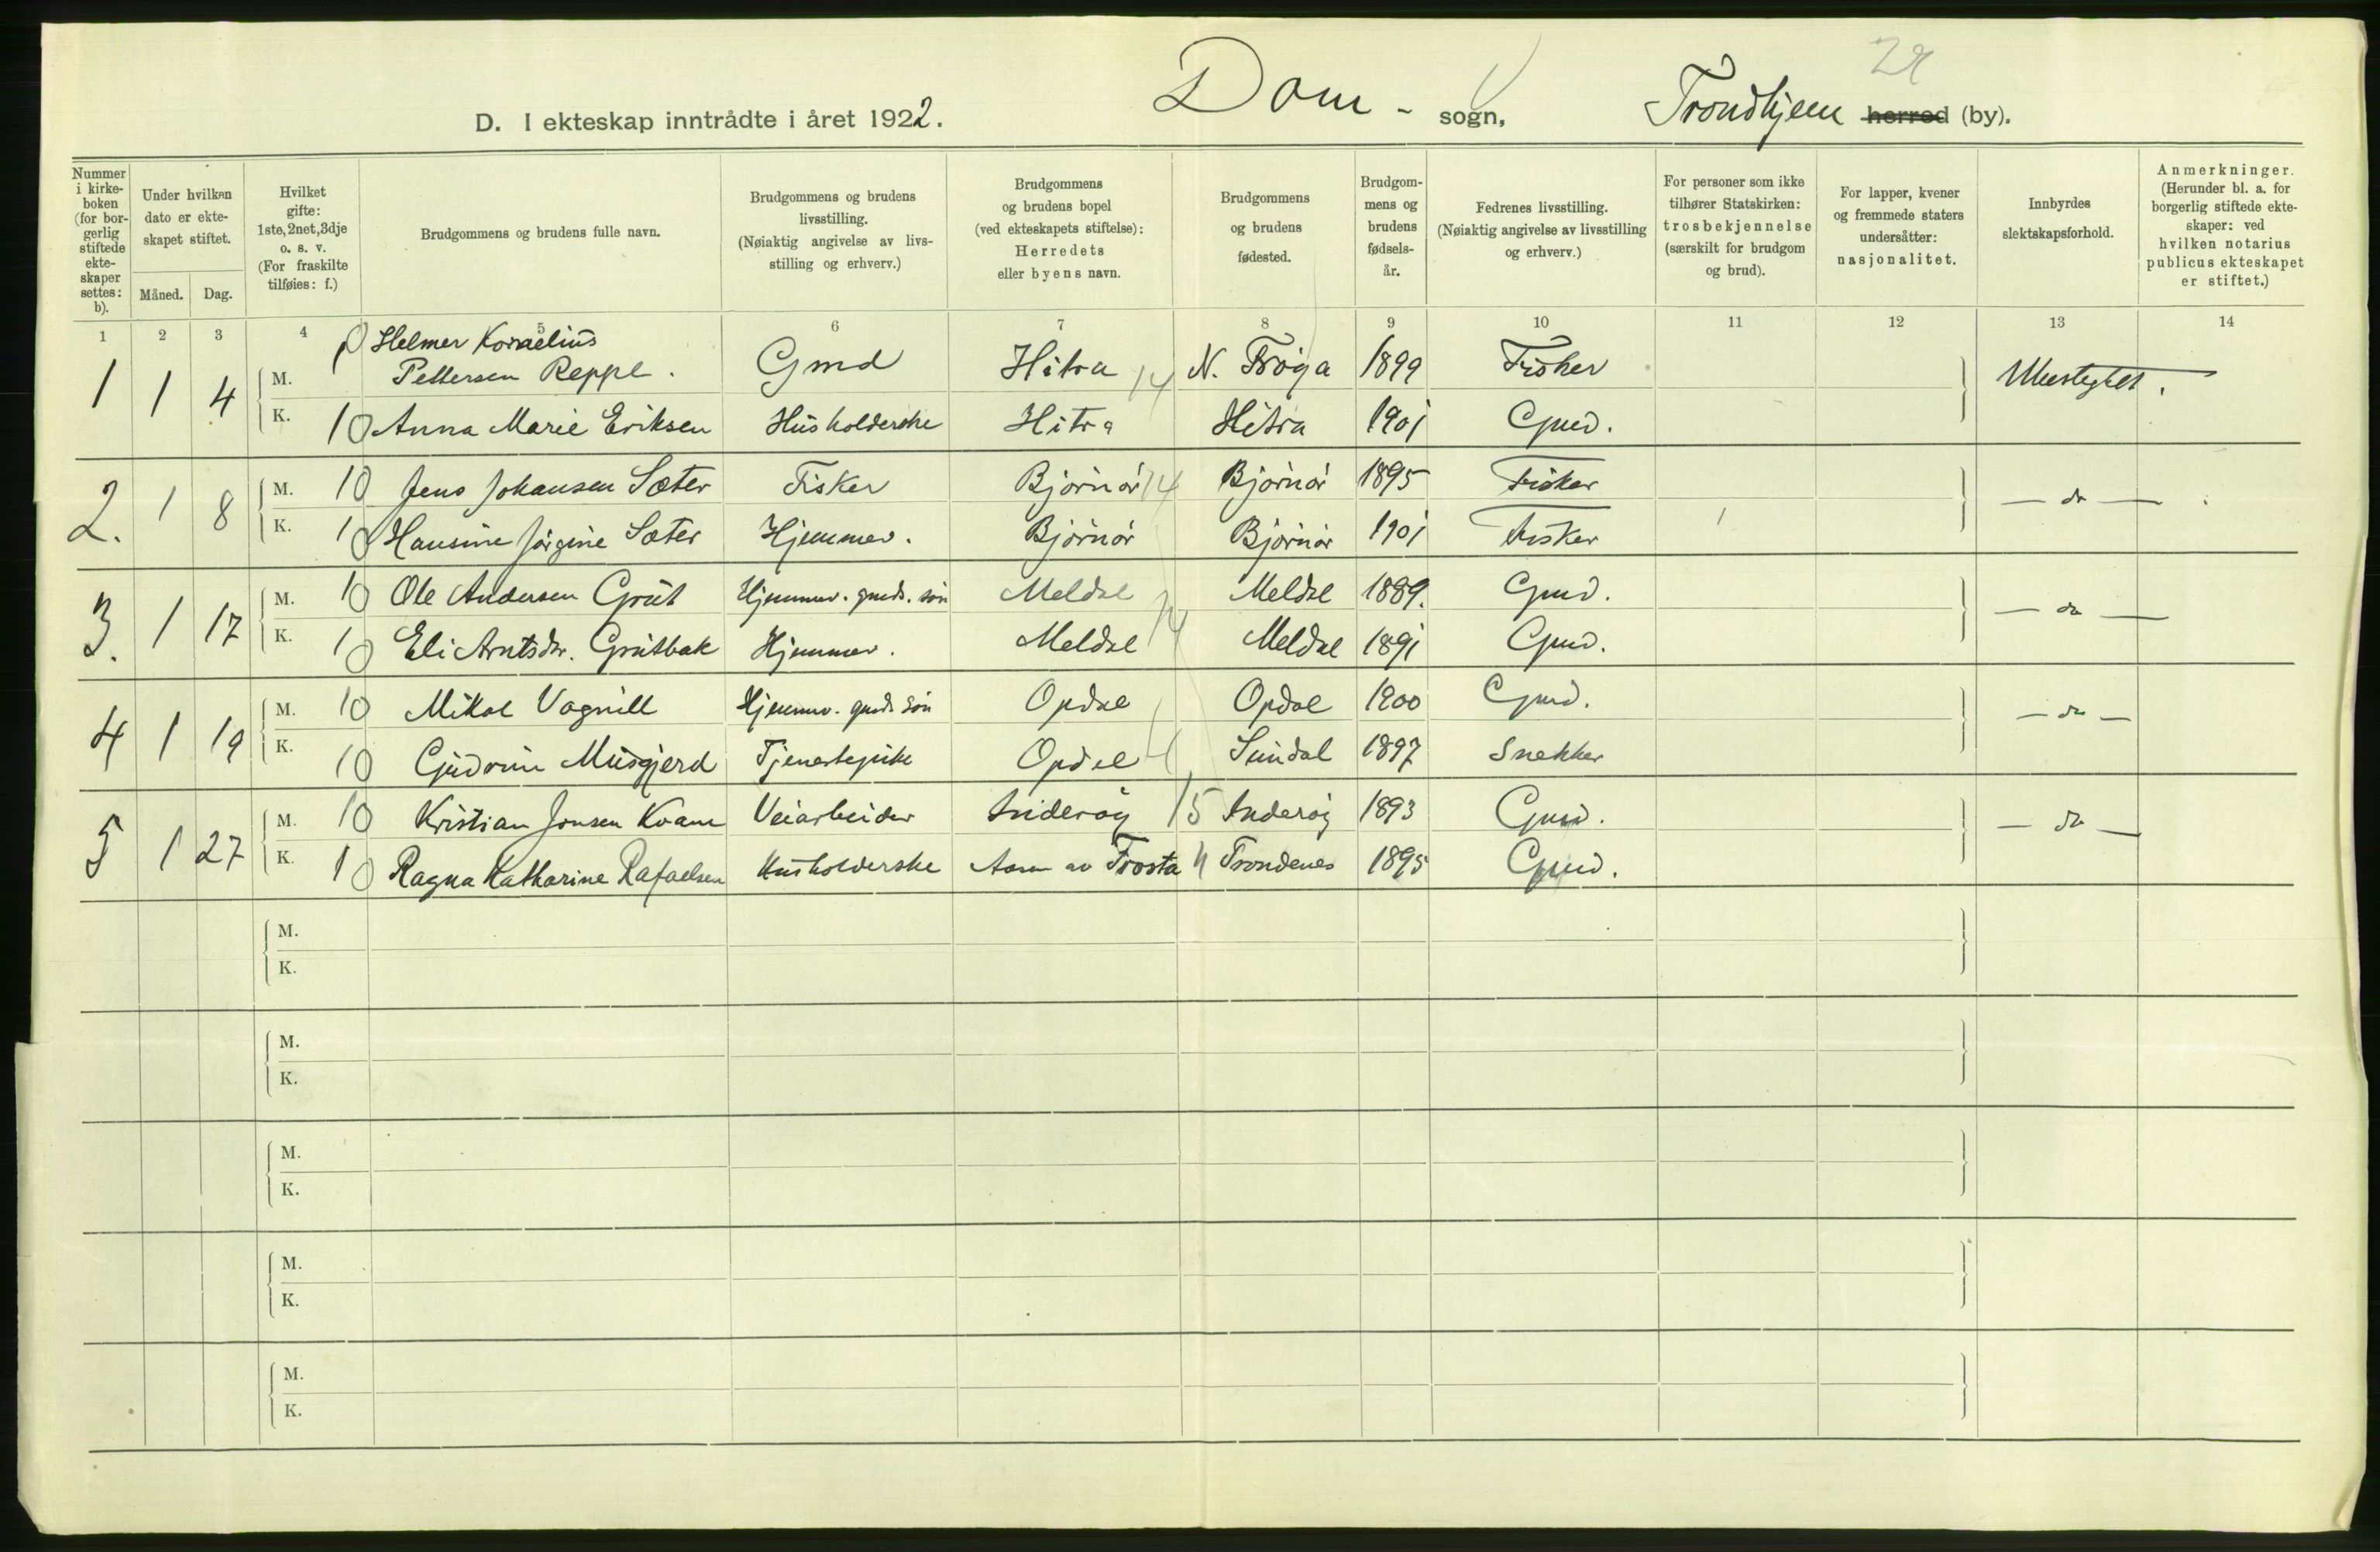 D. I ekteskap inntrådte i året 1922. Dom - sogn, Trondhjem herred (by).
Nummer i kirke-boken (for bor-gerlig stiftede ekte-skaper settes: b).
Under hvilken dato er ekte-skapet stiftet.
Måned. Dag.
Hvilket gifte: 1ste, 2net, 3dje o. s. v. (For fraskilte tilføies: f.)
Brudgommens og brudens fulle navn.
Brudgommens og brudens livsstilling. (Nøiaktig angivelse av livs-stilling og erhverv.)
Brudgommens og brudens bopel (ved ekteskapets stiftelse): Herredets eller byens navn.
Brudgommens og brudens fødested.
Brudgom-mens og brudens fødsels-år.
Fedrenes livsstilling. (Nøiaktig angivelse av livsstilling og erhverv.)
For personer som ikke tilhører Statskirken: trosbekjennelse (særskilt for brudgom og brud).
For lapper, kvener og fremmede staters undersåtter: nasjonalitet.
Innbyrdes slektskapsforhold.
Anmerkninger. (Herunder bl. a. for borgerlig stiftede ekte-skaper: ved hvilken notarius publicus ekteskapet er stiftet.)
1 2 3 4 5 6 7 8 9 10 11 12 13 14
1 1 4 M. 10 Helmer Kornelius Pettersen Reppe. Gmd Hitra 14 N. Frøya 1899 Fisker Ubeslegtet.
K. 10 Anna Marie Eriksen Husholderske Hitra Hitra 1901 Gmd.
2. 1 8 M. 10 Jens Johansen Sæter Fisker Bjørnør 14 Bjørnør 1895 Fisker — do —
K. 10 Hansine Jørgine Sæter Hjemmev. Bjørnør Bjørnør 1901 Fisker
3. 1 17 M. 10 Ole Andersen Grüt Hjemmev. gmds. søn Meldal 14 Meldal 1889. Gmd. — do —
K. 10 Eli Arntsdr. Grütbak Hjemmev. Meldal Meldal 1891 Gmd.
4 1 19 M. 10 Mikal Vognill Hjemmev. gmds søn Opdal Opdal 1900 Gmd. — do —
K. 10 Gudrun Musgjerd Tjenestepike Opdal Sundal 1897 Snekker
5 1 27 M. 10 Kristian Jonsen Kvam Veiarbeider Inderøy 15 Inderøy 1893 Gmd. — do —
K. 10 Ragna Katharine Rafaelsen Husholderske Aasen av Frosta Trondenes 1895 Gmd.
M.
K.
M.
K.
M.
K.
M.
K.
M.
K.